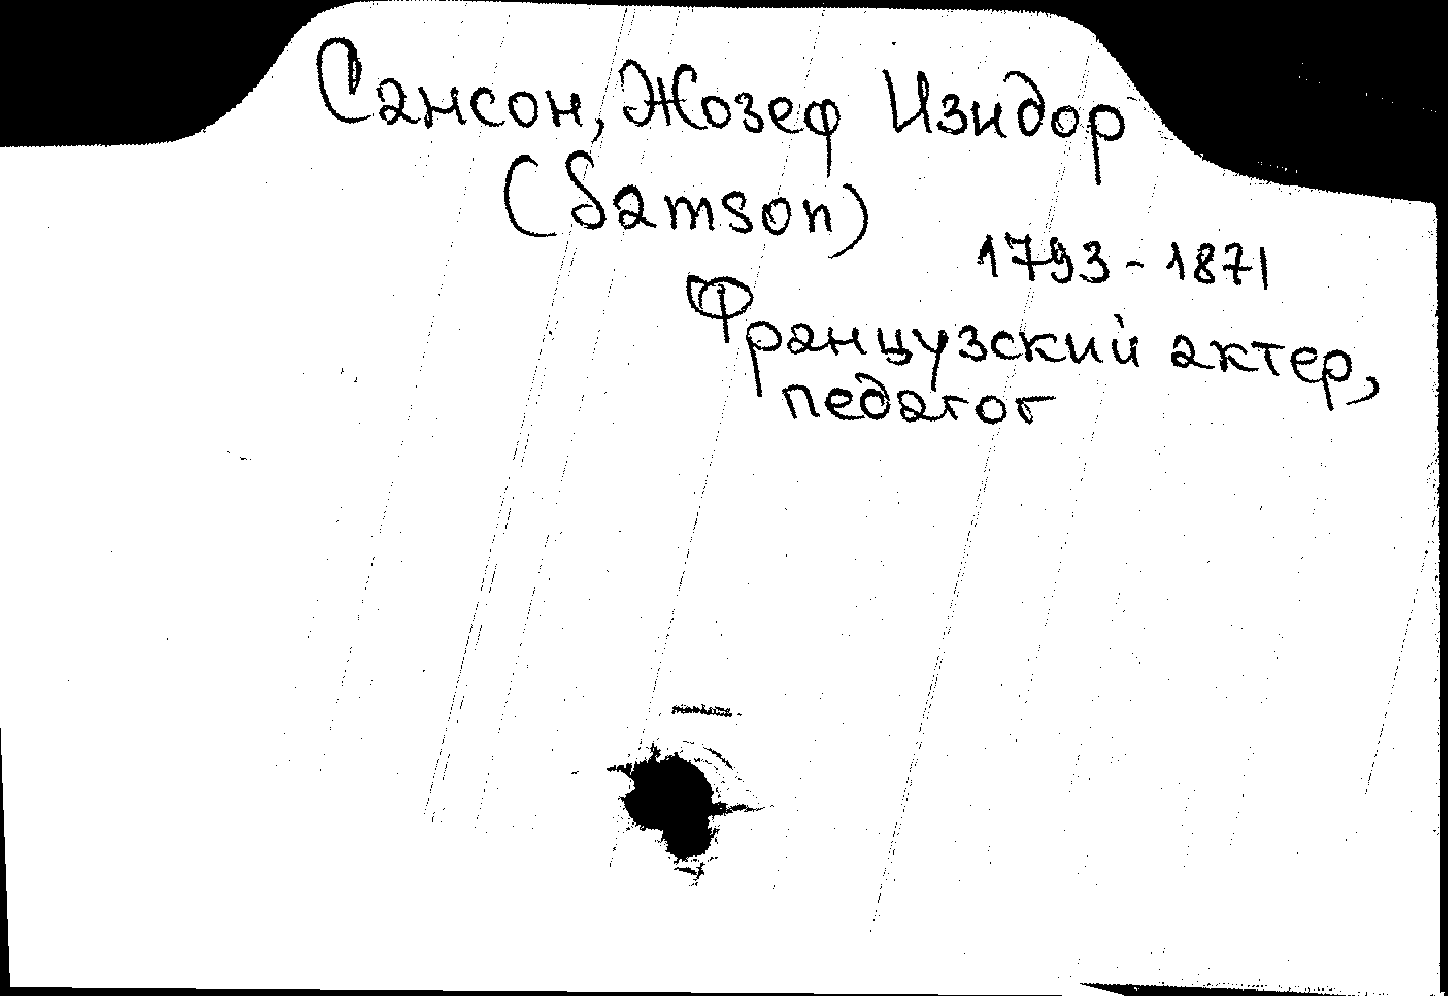 Сансон, Жозеф Изидор
(Samson)
1793 - 1871
Французский актер,
педагог